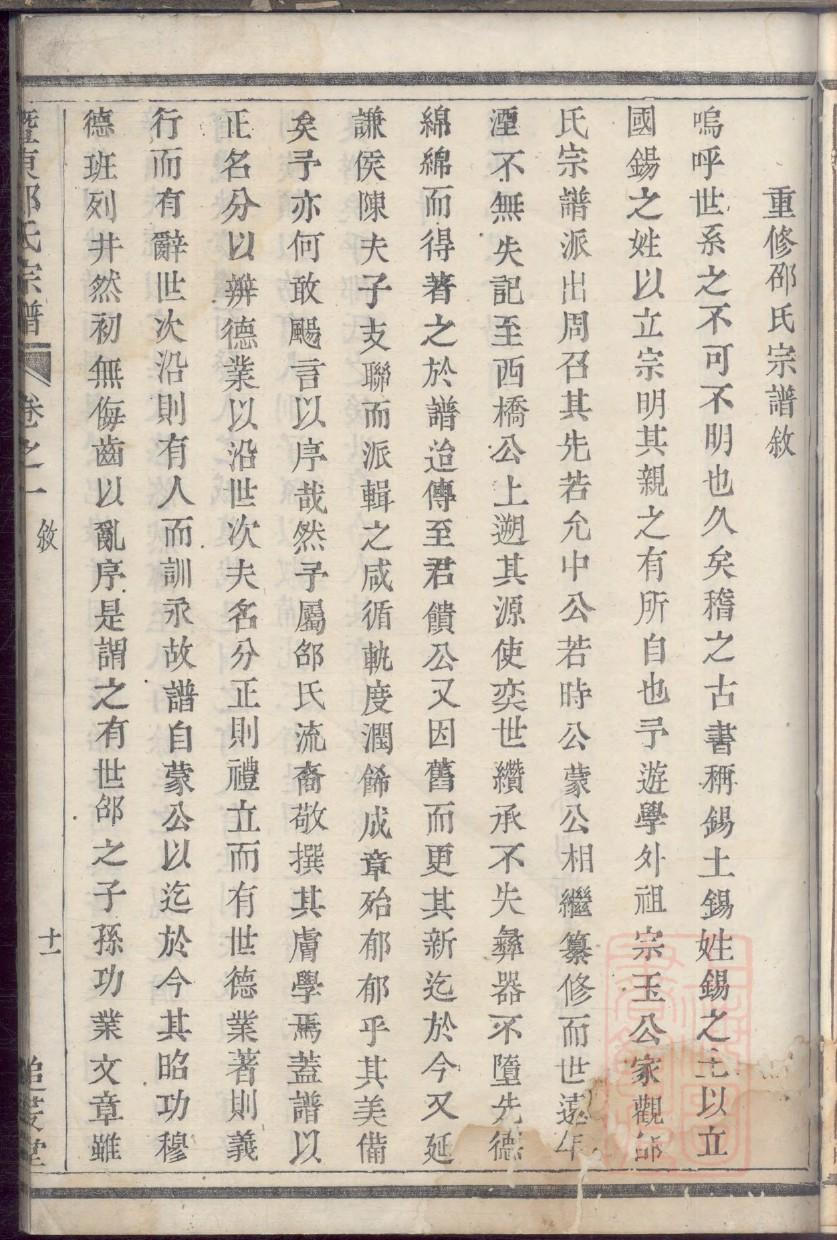 重修邵氏宗譜敘
嗚呼世系之不可不明也久矣稽之古書稱錫土錫姓錫之土以立
國錫之姓以立宗明其親之有所自也予遊學外祖宗玉公家觀邰
氏宗譜派出周召其先若允中公若時公蒙公相繼纂修而世遠年
湮不無失記至西橋公上遡其源使奕世纘承不失彝器不墮先德
綿綿而得著之於譜迨傳至君饋公又因舊而更其新迄於今又延
謙侯陳夫子支聯而派輯之咸循軌度潤餙成章殆郁郁乎其美備
矣予亦何敢颺言以序哉然予屬邰氏流裔敬撰其膚學焉蓋譜以
正名分以辨德業以沿世次夫名分正則禮立而有世德業著則義
行而有辭世次沿則有人而訓永故譜自蒙公以迄於今其昭功穆
德班列井然初無侮齒以亂序是謂之有世邰之子孫功業文章雖
暨東邵氏宗譜 卷之一 敘 十一 追遠堂